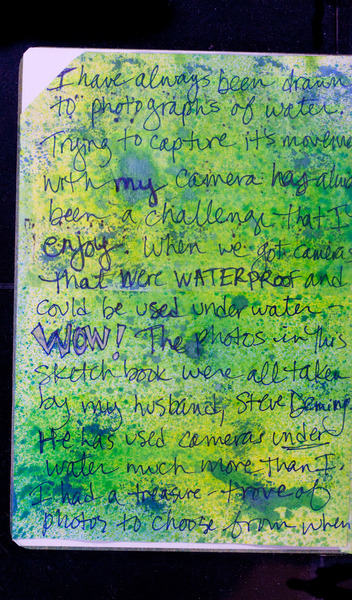 I have always been drawn
to photographs of water.
Trying to capture it's moveme
with my camera has alwa
been a challenge that I
enjoy. When we got camera
that were WATERPROOF and
could be used under water -
WOW! The photos in this
sketch book were all taken
by my husband, Steve Deming
He has used cameras under
water much more than I.
I had a treasure-trove of
photos to choose from when